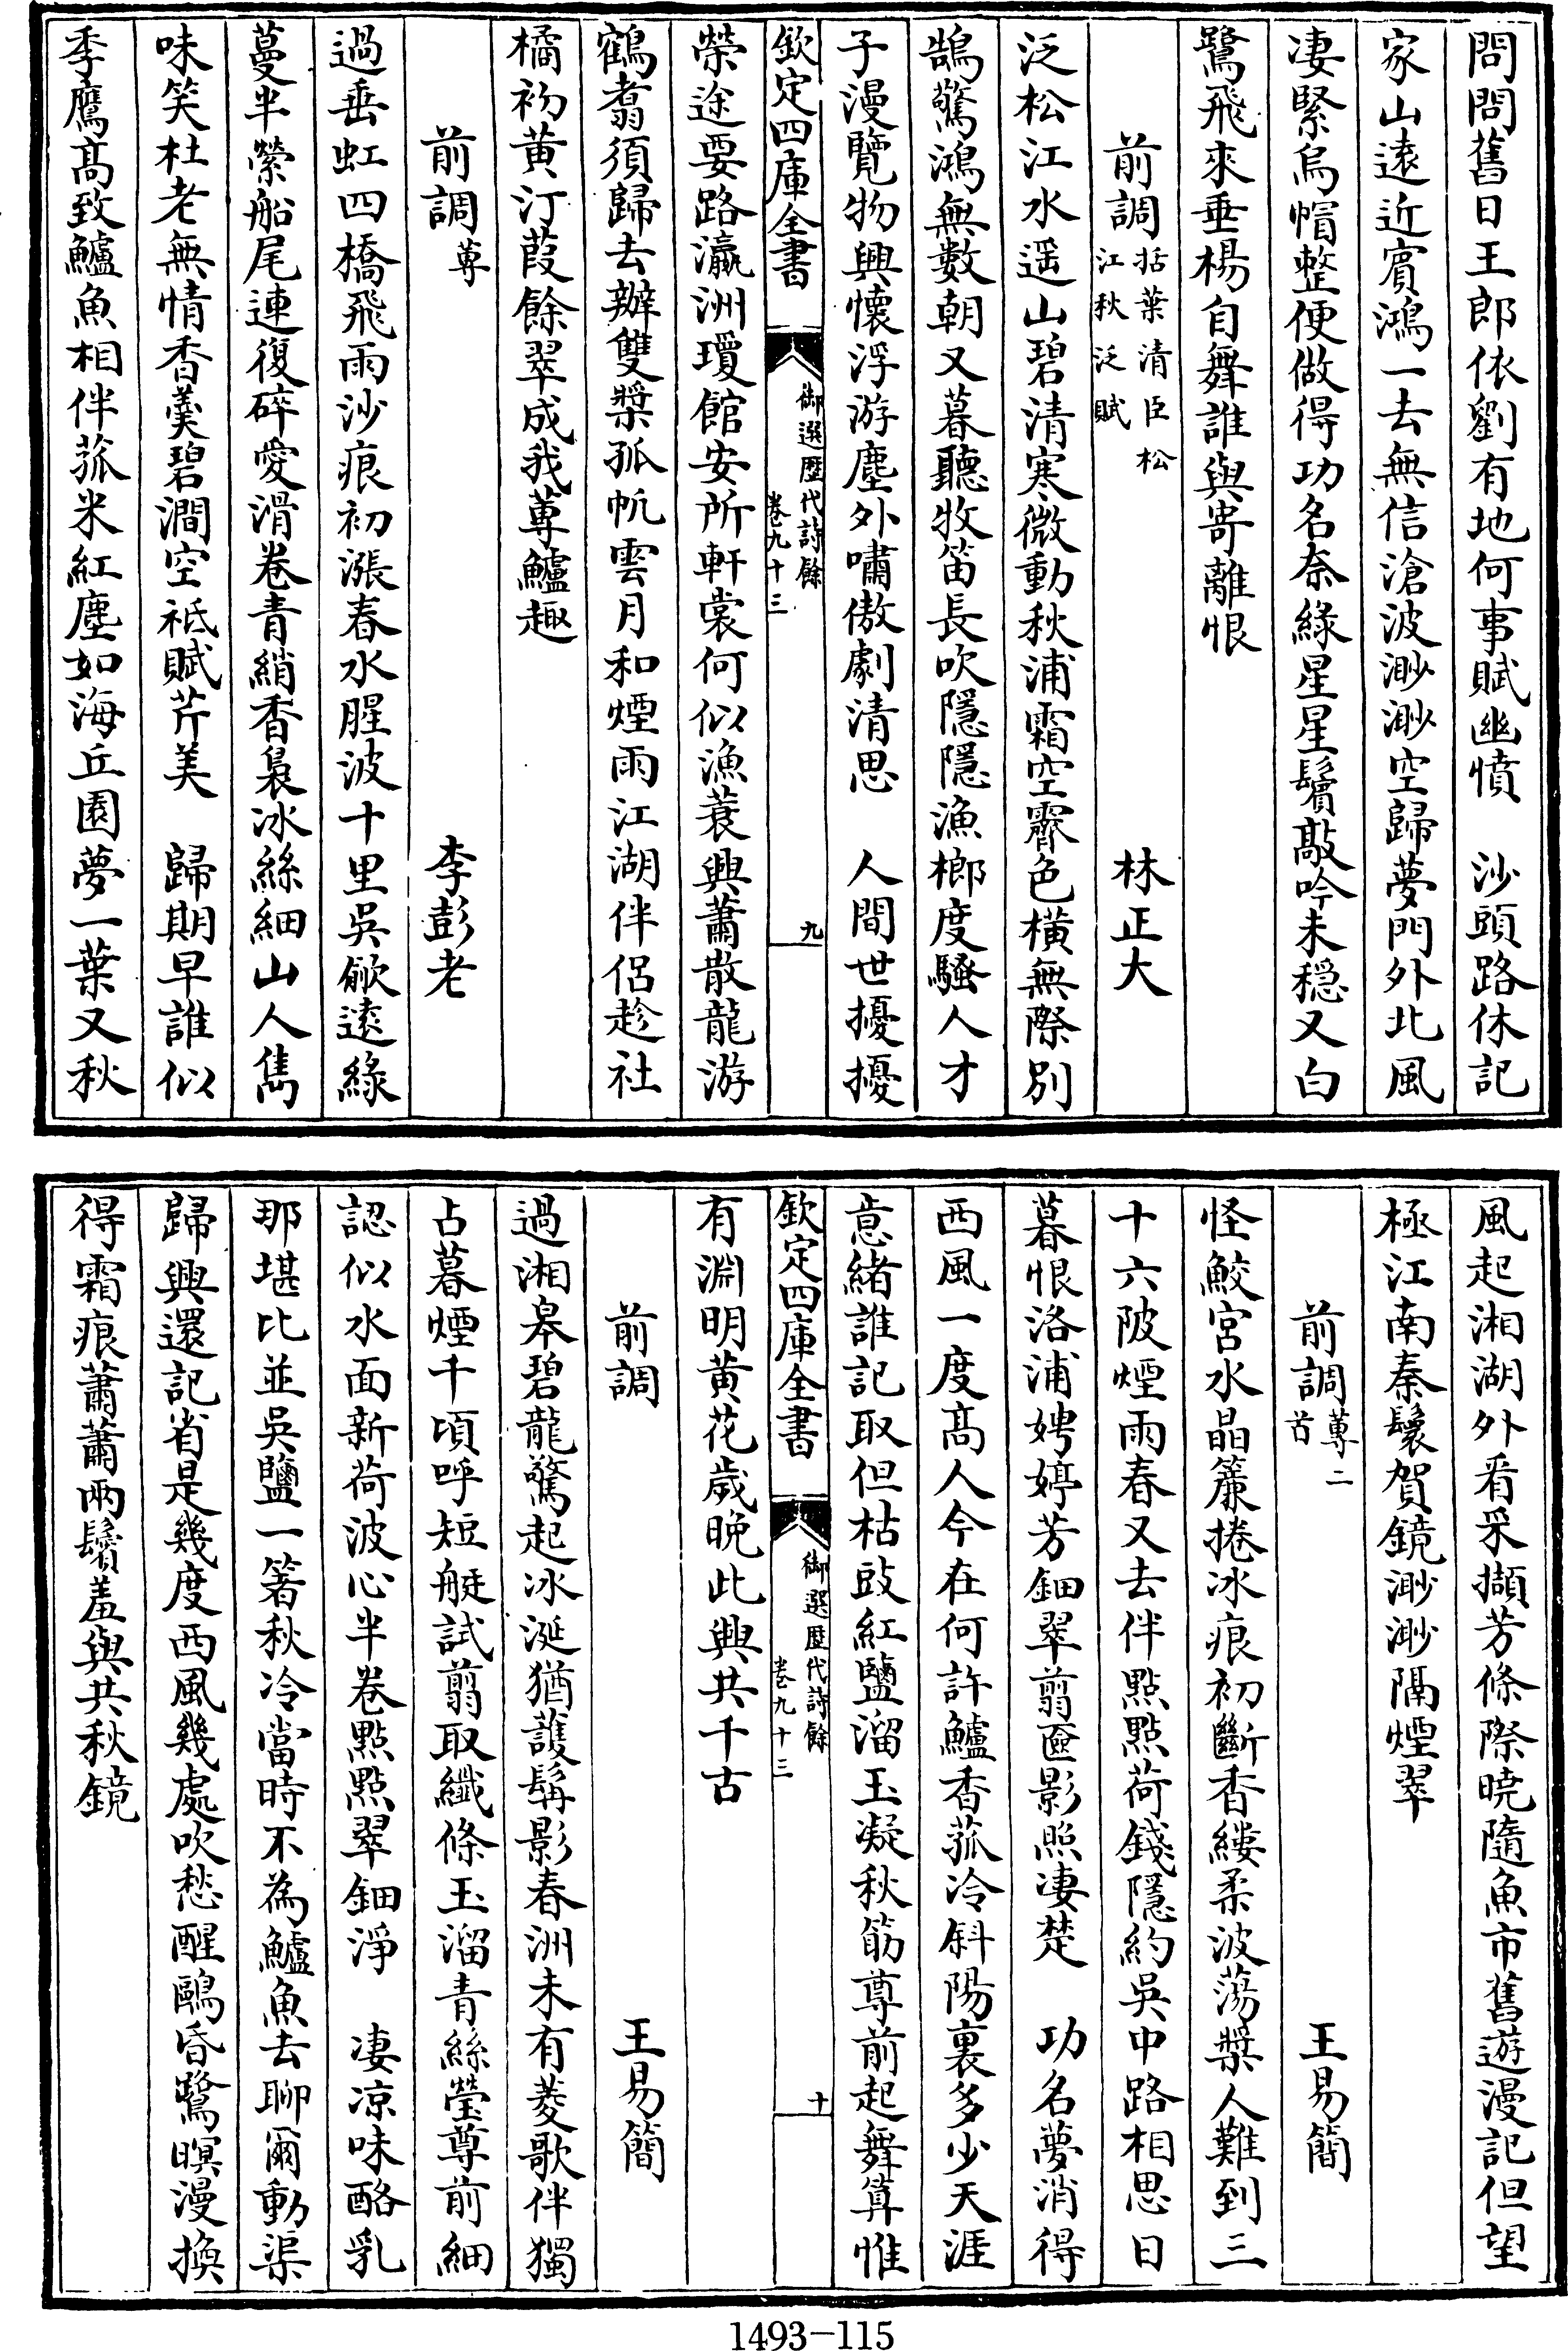 問問舊日王郎依劉有地何事賦幽憤　沙頭路休記
家山遠近賓鴻一去無信滄波渺渺空歸夢門外北風
凄緊烏帽整便做得功名奈緣星星鬢敲吟未穩又白
鷺飛來垂楊自舞誰與寄離恨
前調括葉清臣松江秋泛賦　林正大
泛松江水遥山碧清寒微動秋浦霜空霽色橫無際别
鵠驚鴻無數朝又暮聽牧笛長吹隱隱漁榔度騷人才
子漫覽物興懷浮游塵外嘯傲劇清思　人間世擾擾
欽定四庫全書　御選歷代詩餘 卷九十三　九
榮途要路瀛洲瓊館安所軒裳何似漁蓑興蕭散龍游
鶴翥須歸去辦雙槳孤帆雲月和煙雨江湖伴侶趁社
橘初黄汀葭餘翠成我蓴鱸趣
前調蓴　李彭老
過垂虹四橋飛雨沙痕初漲春水腥波十里吳歈遠緑
蔓半縈船尾連復碎愛滑卷青綃香裊冰絲細山人雋
味笑杜老無情香羮碧澗空祗賦芹美　歸期早誰似
季鷹髙致鱸魚相伴菰米紅塵如海丘園夢一葉又秋
風起湘湖外看采擷芳條際曉隨魚市舊遊漫記但望
極江南秦鬟賀鏡渺渺隔煙翠
前調蓴二首　王易簡
怪鮫宮水晶簾捲冰痕初斷香縷柔波蕩槳人難到三
十六陂煙雨春又去伴點點荷錢隱約吳中路相思日
暮恨洛浦娉婷芳鈿翠剪奩影照凄楚　功名夢消得
西風一度髙人今在何許鱸香菰冷斜陽裏多少天涯
意緒誰記取但枯豉紅鹽溜玉凝秋筯尊前起舞算惟
欽定四庫全書　御選歷代詩餘 卷九十三　十
有淵明黄花歲晚此興共千古
前調　王易簡
過湘皋碧龍驚起冰涎猶護髯影春洲未有菱歌伴獨
占暮煙千頃呼短艇試剪取纖條玉溜青絲瑩尊前細
認似水面新荷波心半卷點點翠鈿淨　凄凉味酪乳
那堪比並吳鹽一箸秋冷當時不為鱸魚去聊爾動渠
歸興還記省是幾度西風幾處吹愁醒鷗昏鷺暝漫換
得霜痕蕭蕭兩鬢羞與共秋鏡
1493-115